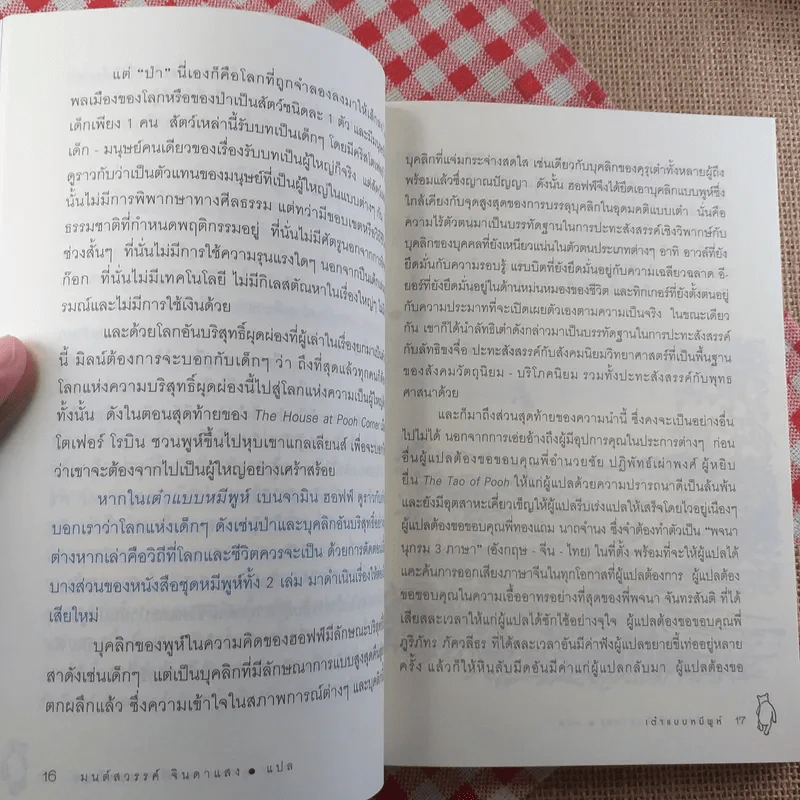 แต่ “ป่า” นี่เองก็คือโลกที่ถูกจำลองลงมาให้เล็ก
พลเมืองของโลกหรือของป่าเป็นสัตว์ชนิดละ 1 ตัว และมีมนุษย์
เด็กเพียง 1 คน สัตว์เหล่านี้รับบทเป็นเด็กๆ โดยมีคริสโตเฟอร์
เด็ก - มนุษย์คนเดียวของเรื่องรับบทเป็นผู้ใหญ่ก็จริง แต่สัตว์
ดูราวกับว่าเป็นตัวแทนของมนุษย์ที่เป็นผู้ใหญ่ในแบบต่างๆ
นั้นไม่มีการพิพากษาทางศีลธรรม แต่ทว่ามีขอบเขตหรือวิถี
ธรรมชาติที่กำหนดพฤติกรรมอยู่ ที่นั่นไม่มีศัตรูนอกจากการ
ช่วงสั้นๆ ที่นั่นไม่มีการใช้ความรุนแรงใดๆ นอกจากเป็นเด็ก
ก๊อก ที่นั่นไม่มีเทคโนโลยี ไม่มีกิเลสตัณหาในเรื่องใหญ่ๆ
รมณ์และไม่มีการใช้เงินด้วย
และด้วยโลกอันบริสุทธิ์ผุดผ่องที่ผู้เล่าในเรื่องยกมาเป็น
นี้ มิลน์ต้องการจะบอกกับเด็กๆ ว่า ถึงที่สุดแล้วทุกคนก็
โลกแห่งความบริสุทธิ์ผุดผ่องนี้ไปสู่โลกแห่งความเป็นผู้ใหญ่
ทั้งนั้น ดังในตอนสุดท้ายของ The House at Pooh Corner
โตเฟอร์ โรบิน ชวนพูห์ขึ้นไปหุบเขาแกลเลียนส์ เพื่อจะบอก
ว่าเขาจะต้องจากไปเป็นผู้ใหญ่อย่างเศร้าสร้อย
หากในเต๋าแบบหมีพูห์ เบนจามิน ฮอฟฟ์ ดูราวกับ
บอกเราว่าโลกแห่งเด็กๆ ดังเช่นป่าและบุคลิกอันบริสุทธิ์
ต่างหากเล่าคือวิถีที่โลกและชีวิตควรจะเป็น ด้วยการตัดตอน
บางส่วนของหนังสือชุดหมีพูห์ทั้ง 2 เล่ม มาดำเนินเรื่อง
เสียใหม่
บุคลิกของพูห์ในความคิดของฮอฟฟ์มีลักษณะบริสุทธิ์
สาดังเช่นเด็กๆ แต่เป็นบุคลิกที่มีลักษณาการแบบสูงสุดคืน
ตกผลึกแล้ว ซึ่งความเข้าใจในสภาพการณ์ต่างๆ และบุคลิก
16 มนต์สวรรค์ จินดาแสง ● แปล
บุคลิกที่แจ่มกระจ่างสดใส เช่นเดียวกับบุคลิกของคุรุเต๋าทั้งหลายผู้ถึง
พร้อมแล้วซึ่งญาณปัญญา ดังนั้น ฮอฟฟ์จึงได้ยึดเอาบุคลิกแบบพูห์ซึ่ง
ใกล้เคียงกับจุดสูงสุดของการบรรลุบุคลิกในอุดมคติแบบเต๋า นั่นคือ
ความไร้ตัวตนมาเป็นบรรทัดฐานในการปะทะสังสรรค์เชิงวิพากษ์กับ
บุคลิกของบุคคลที่ยังเหนียวแน่นในตัวตนประเภทต่างๆ อาทิ อาวล์ที่ยัง
ยึดมั่นกับความรอบรู้ แรบบิตที่ยังยึดมั่นอยู่กับความเฉลียวฉลาด อี-
ยอร์ที่ยังยึดมั่นอยู่ในด้านหม่นหมองของชีวิต และทิกเกอร์ที่ยังตั้งตนอยู่
กับความประมาทที่จะเปิดเผยตัวเองตามความเป็นจริง ในขณะเดียว
กัน เขาก็ได้นำลัทธิเต๋าดังกล่าวมาเป็นบรรทัดฐานในการปะทะสังสรรค์
กับลัทธิขงจื่อ ปะทะสังสรรค์กับสังคมนิยมวิทยาศาสตร์ที่เป็นพื้นฐาน
ของสังคมวัตถุนิยม - บริโภคนิยม รวมทั้งปะทะสังสรรค์กับพุทธ
ศาสนาด้วย
และก็มาถึงส่วนสุดท้ายของความนำนี้ ซึ่งคงจะเป็นอย่างอื่น
ไปไม่ได้ นอกจากการเอ่ยอ้างถึงผู้มีอุปการคุณในประการต่างๆ ก่อน
อื่นผู้แปลต้องขอขอบคุณพี่อำนวยชัย ปฏิพัทธ์เผ่าพงศ์ ผู้หยิบ
ยื่น The Tao of Pooh ให้แก่ผู้แปลด้วยความปรารถนาดีเป็นล้นพ้น
และยังมีอุตสาหะเคี่ยวเข็ญให้ผู้แปลรีบเร่งแปลให้เสร็จโดยไวอยู่เนืองๆ
ผู้แปลต้องขอขอบคุณพี่ทองแถม นาถจำนง ซึ่งจำต้องทำตัวเป็น “พจนา
นุกรม 3 ภาษา” (อังกฤษ - จีน - ไทย) ในที่ตั้ง พร้อมที่จะให้ผู้แปลได้
แคะค้นการออกเสียงภาษาจีนในทุกโอกาสที่ผู้แปลต้องการ ผู้แปลต้อง
ขอขอบคุณในความเอื้ออาทรอย่างที่สุดของพี่พจนา จันทรสันติ ที่ได้
เสียสละเวลาให้แก่ผู้แปลได้ซักไซ้อย่างจุใจ ผู้แปลต้องขอขอบคุณพี่
ภูริภัทร ภัควลีธร ที่ได้สละเวลาอันมีค่าฟังผู้แปลขยายขี้เท่ออยู่หลาย
ครั้ง แล้วก็ให้หินลับมีดอันมีค่าแก่ผู้แปลกลับมา ผู้แปลต้องขอ
เต๋าแบบหมีพูห์ 17